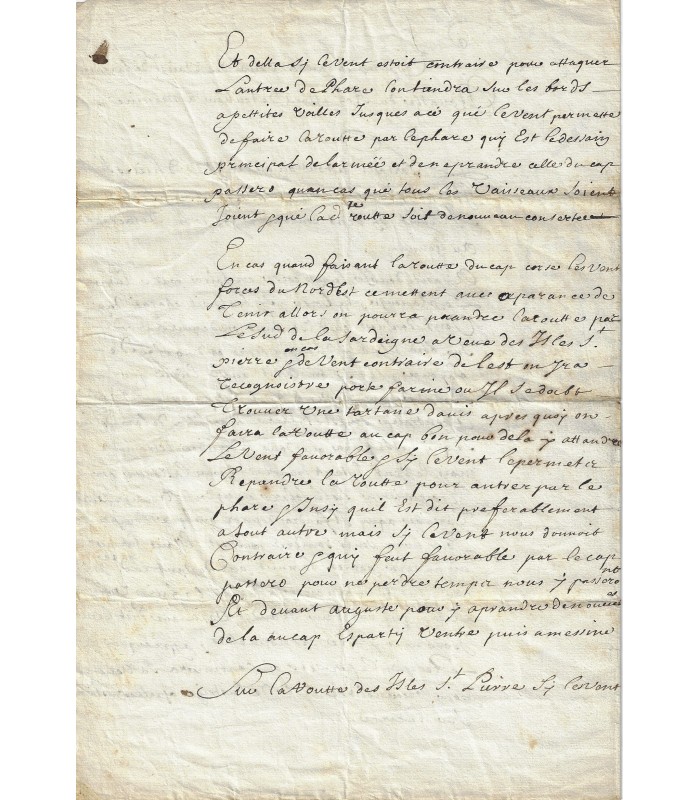 Et della sy le vent estoit contraire pour attaquer
Lantree de Phare lon tiendra sur les bords
apettites voilles Jusques acé qué le vent permette
de faire la routte par le phare quy Est le dessain
principal de larmée et de ne prandre celle du cap
passero quancas qué tous les vaisseaux soient
Joient qué lad te routte soit de nouveau consertee
En cas quand faisant la routte du cap corse les vent
forces du Nordest ce mettent avec aparance de
Tenir allors on pourra prandre la routte par
Le Sud de la Sardeigne a veue des Isles St
pierre en cas de vent contraire de lest on Jra
recognoistre porte farine ou Il se doibt
trouver une tartane davis apres quoy on
faira la routte au cap bon pour de la y attandre
Le vent favorable sy le vent le permet
Reprandre la routte pour antrer par le
phare Insy quil Est dit preferablement
a tout autre mais sy le vent nous donnoit
Contraire quy feut favorable par le cap
passero pour ne perdre temps nous y passeront
Et devant auguste pour y aprandre de nouvelles
de la au cap Espartiventre puis a messine
Sur la routte des Isles St Pierre sy le vent